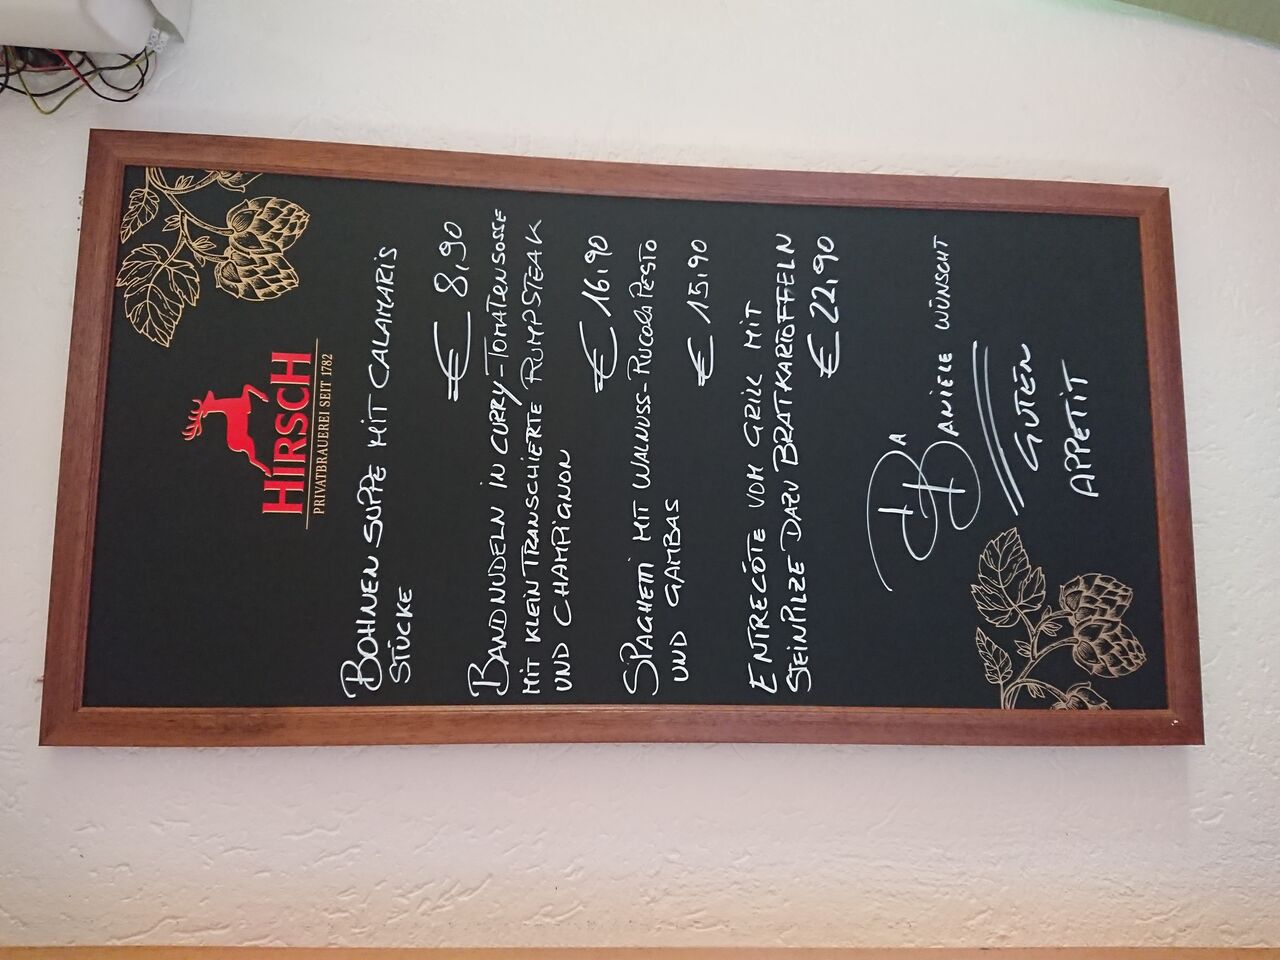 HIRSCH
PRIVATBRAUEREI SEIT 1782
BOHNEN SUPPE MIT CALAMARIS
STÜCKE
€ 8,90
BANDNUDELN IN CURRY-TOMATENSOSSE
MIT KLEIN TRANSCHIERTE RUMPSTEAK
UND CHAMPIGNON
€ 16,90
SPAGHETTI MIT WALNUSS-RUCOLA PESTO
UND GAMBAS
€ 15,90
ENTRECÔTE VOM GRILL MIT
STEINPILZE DAZU BRATKARTOFFELN
€ 22,90
DA
DANIELE WÜNSCHT
GUTEN
APPETIT